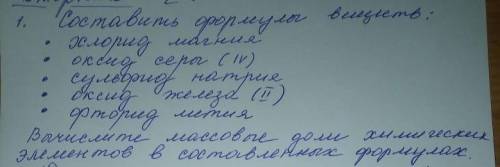 1. Составить формулы веществ:
• хлорид магния
• оксид серы (IV)
• сульфид натрия
• оксид железа (II)
• фторид лития
Вычислите массовые доли химических
элементов в составленных формулах.